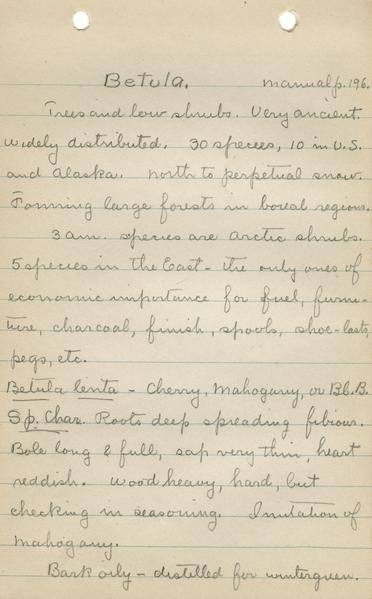 Betula. Manual p. 196.
Trees and low shrubs. Very ancient.
Widely distributed. 30 species, 10 in U.S.
and Alaska. North to perpetual snow.
Forming large forests in boreal regions.
3 am. species are arctic shrubs.
5 species in the East - the only ones of
economic importance for fuel, furni-
ture, charcoal, finish, spools, shoe-lasts,
pegs, etc.
Betula lenta - Cherry, Mahogany, or Bl. B.
Sp. Char. Roots deep spreading fibious.
Bole long & full, sap very thin, heart
reddish. Wood heavy, hard, but
checking in seasoning. Imitation of
mahogany.
Bark oily - distilled for wintergreen.